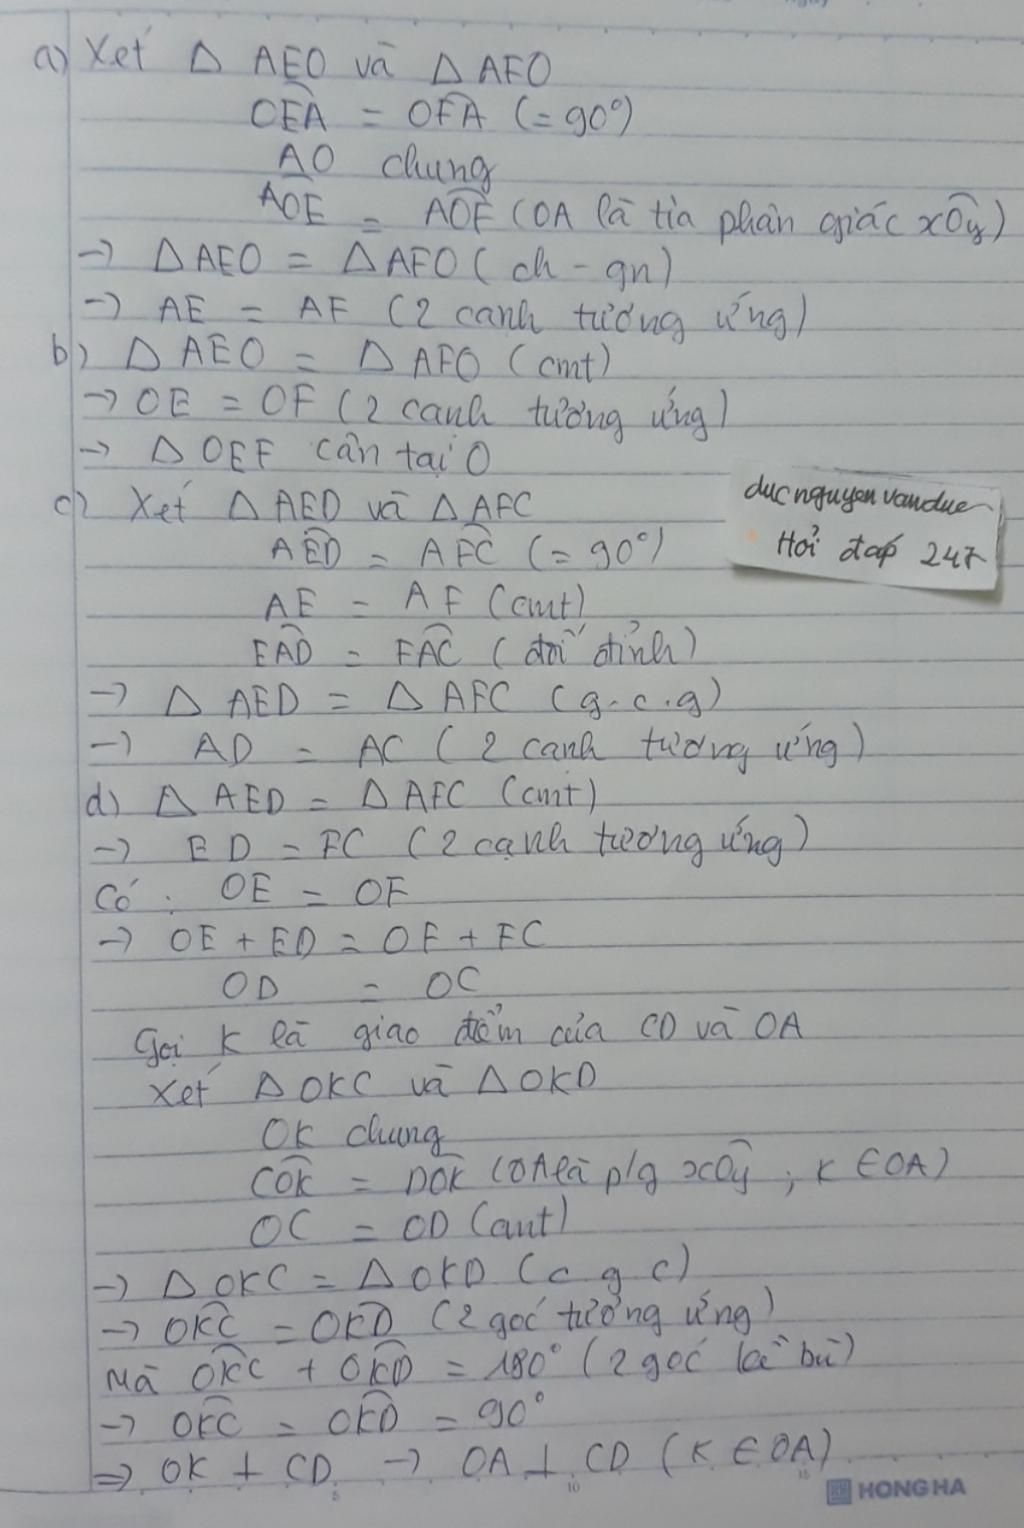 a) Xét Δ AEO và Δ AFO
OEA = OFA (= 90°)
AO chung
AOE = AOF (OA là tia phân giác xOy)
→ Δ AEO = Δ AFO (ch - gn)
→ AE = AF (2 cạnh tương ứng)
b) Δ AEO = Δ AFO (cmt)
→ OE = OF (2 cạnh tương ứng)
→ Δ OEF cân tại O
c) Xét Δ AED và Δ AFC
AED = AFC (= 90°)
AE = AF (cmt)
EAD = FAC (đối đỉnh)
→ Δ AED = Δ AFC (g.c.g)
→ AD = AC (2 cạnh tương ứng)
d) Δ AED = Δ AFC (cmt)
→ ED = FC (2 cạnh tương ứng)
Có : OE = OF
→ OE + ED = OF + FC
OD = OC
Gọi K là giao điểm của CD và OA
Xét Δ OKC và Δ OKD
OK chung
COK = DOK (OA là p/g xOy ; K ∈ OA)
OC = OD (cmt)
→ Δ OKC = Δ OKD (c g c)
→ OKC = OKD (2 góc tương ứng)
Mà OKC + OKD = 180° (2 góc kề bù)
→ OKC = OKD = 90°
⇒ OK ⊥ CD → OA ⊥ CD (K ∈ OA)
ducnguyenvanduc
Hỏi đáp 247
5 10 15
HONG HA